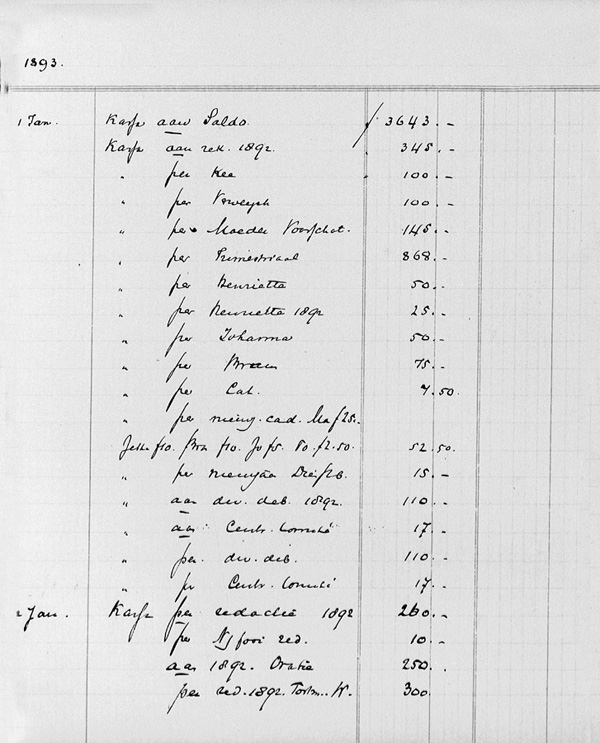 1893.
1 Jan. Kassa aan Saldo. ƒ 3643.-
Kassa aan rek. 1892. 345.-
" per Kee 100.-
" per 100.-
" per Moeder Voorschot. 145.-
" per Trimestriaal 868.-
" per Henrietta 50.-
" per Henrietta 1892 25.-
" per Johanna 50.-
" per Bram 75.-
" per Cat. 7.50.
" per cad. Ma ƒ25.-
ƒ10. Bra ƒ10. Jo ƒ5. To. ƒ2.50. 52.50.
" per 15.-
" aan div. deb. 1892. 110.-
" aan Centr. Comité 17.-
" per. div. deb. 110.-
" pr Centr. Comité 17.-
2 Jan. Kassa per redactie 1892 260.-
per Nj fooi red. 10.-
aan 1892. Oratie 250.
per red. 1892. W. 300.